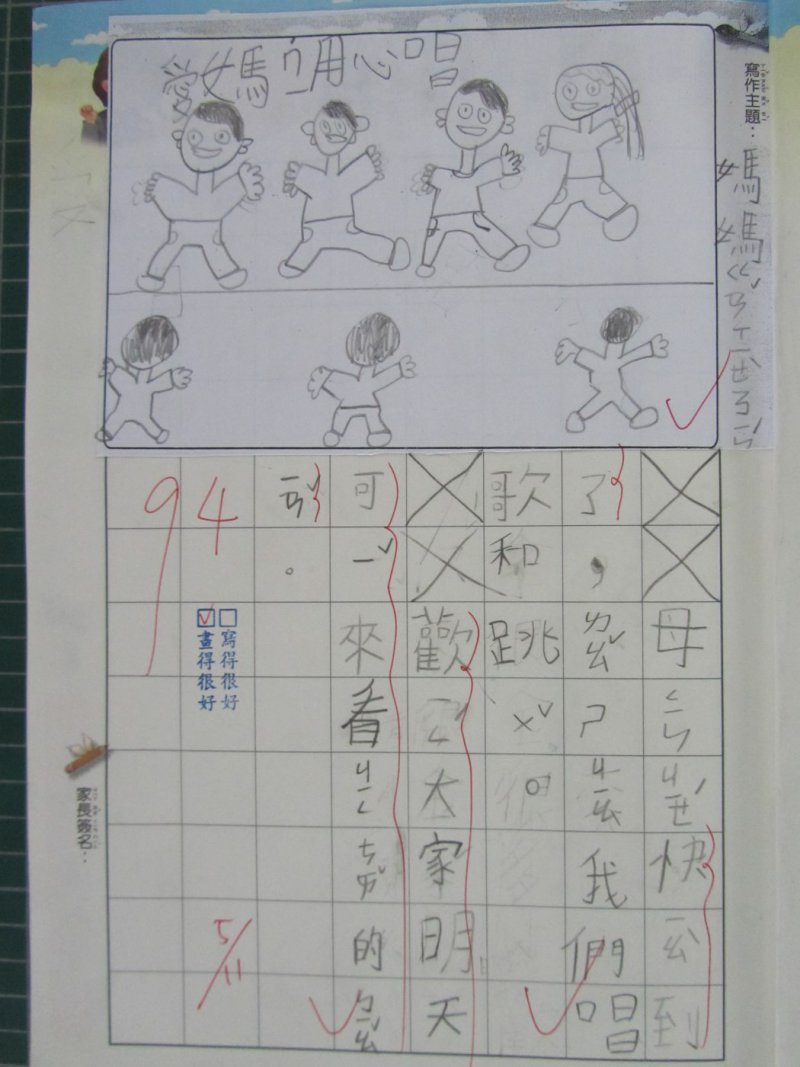 愛媽用心唱
寫作主題：媽媽ㄍㄢˇㄒㄧㄝˋㄋㄧˇ
母ㄑㄧㄣㄐㄧㄝˊ快ㄧㄠ到
了，ㄌㄠˇㄕㄐㄧㄠ我們唱
歌和跳ㄨˇ。
歡ㄧㄥˊ大家明天
可ㄧˇ來看ㄐㄧㄥㄘㄞˇ的ㄅㄧㄠˇ
ㄧㄢˇ。
寫得很好
畫得很好
94
5/11
家長簽名：